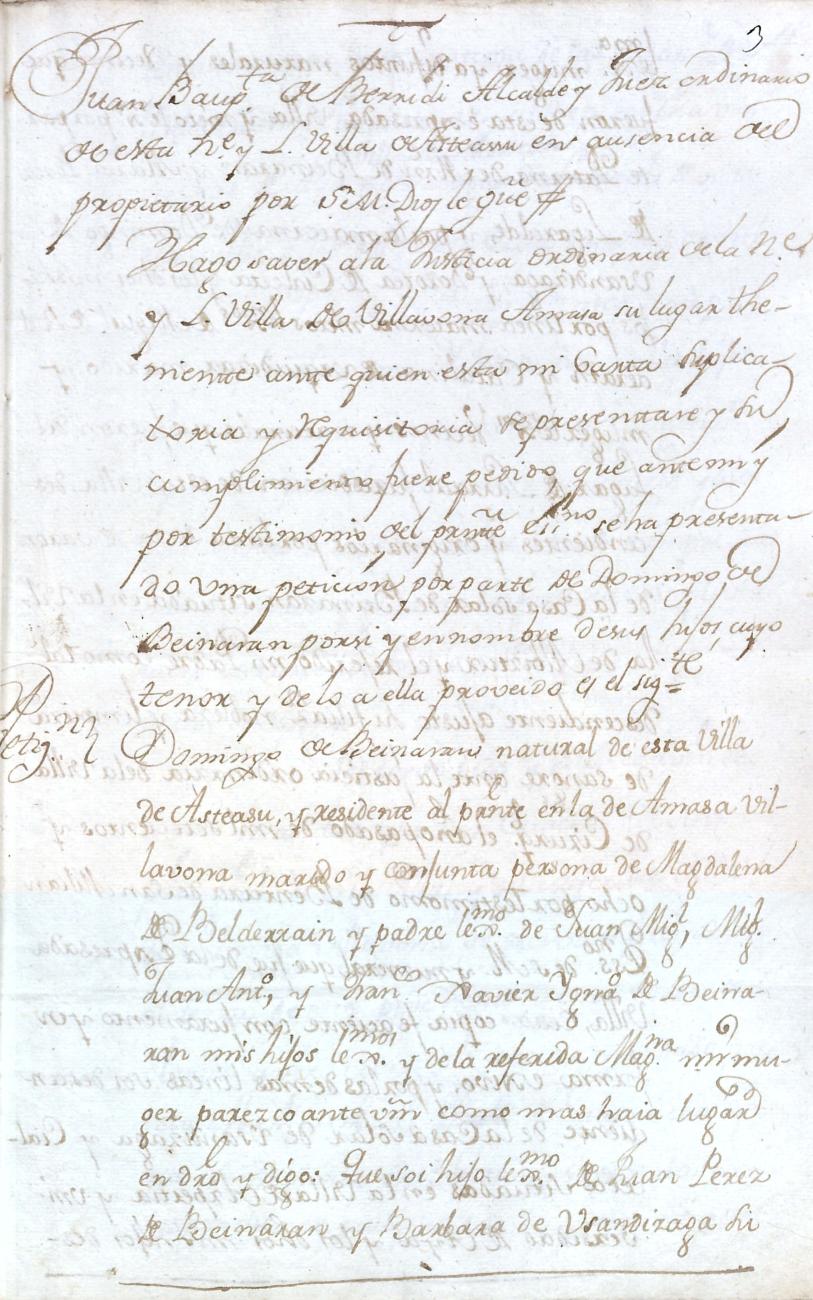 3
Juan Baupta de Berridi Alcalde y Juez ordinario
de esta Ne. y L. Villa de Asteasu en ausencia del
propietario por S.M. Dios le gue #
Hago saver ala Justicia ordinaria de la Ne.
y L. Villa de Villavona Amasa su lugar the-
niente ante quien esta mi Carta suplica-
toria y Requisitoria se presentare y su
cumplimiento fuere pedido que ante mi y
por testimonio del prnte essno se ha presenta-
do una petición por parte de Domingo de
Beinaran por si y en nombre de sus hijos, cuyo
tenor y de lo a ella proveido es el sigte=
Petizn Domingo de Beinaran natural de esta Villa
de Asteasu, y residente al prnte en la de Amasa Vil-
lavona marido y conjunta persona de Magdalena
de Belderrain y padre lexmo. de Juan Migl, Migl.
Juan Anto, y Franco Xavier Ygnao de Beina-
ran mis hijos lexmos. y de la referida Magna. mi mu-
ger parezco ante vm como mas haia lugar
en dro y digo: Que soi hijo lexmo. de Juan Perez
de Beinaran y Barbara de Usandizaga su